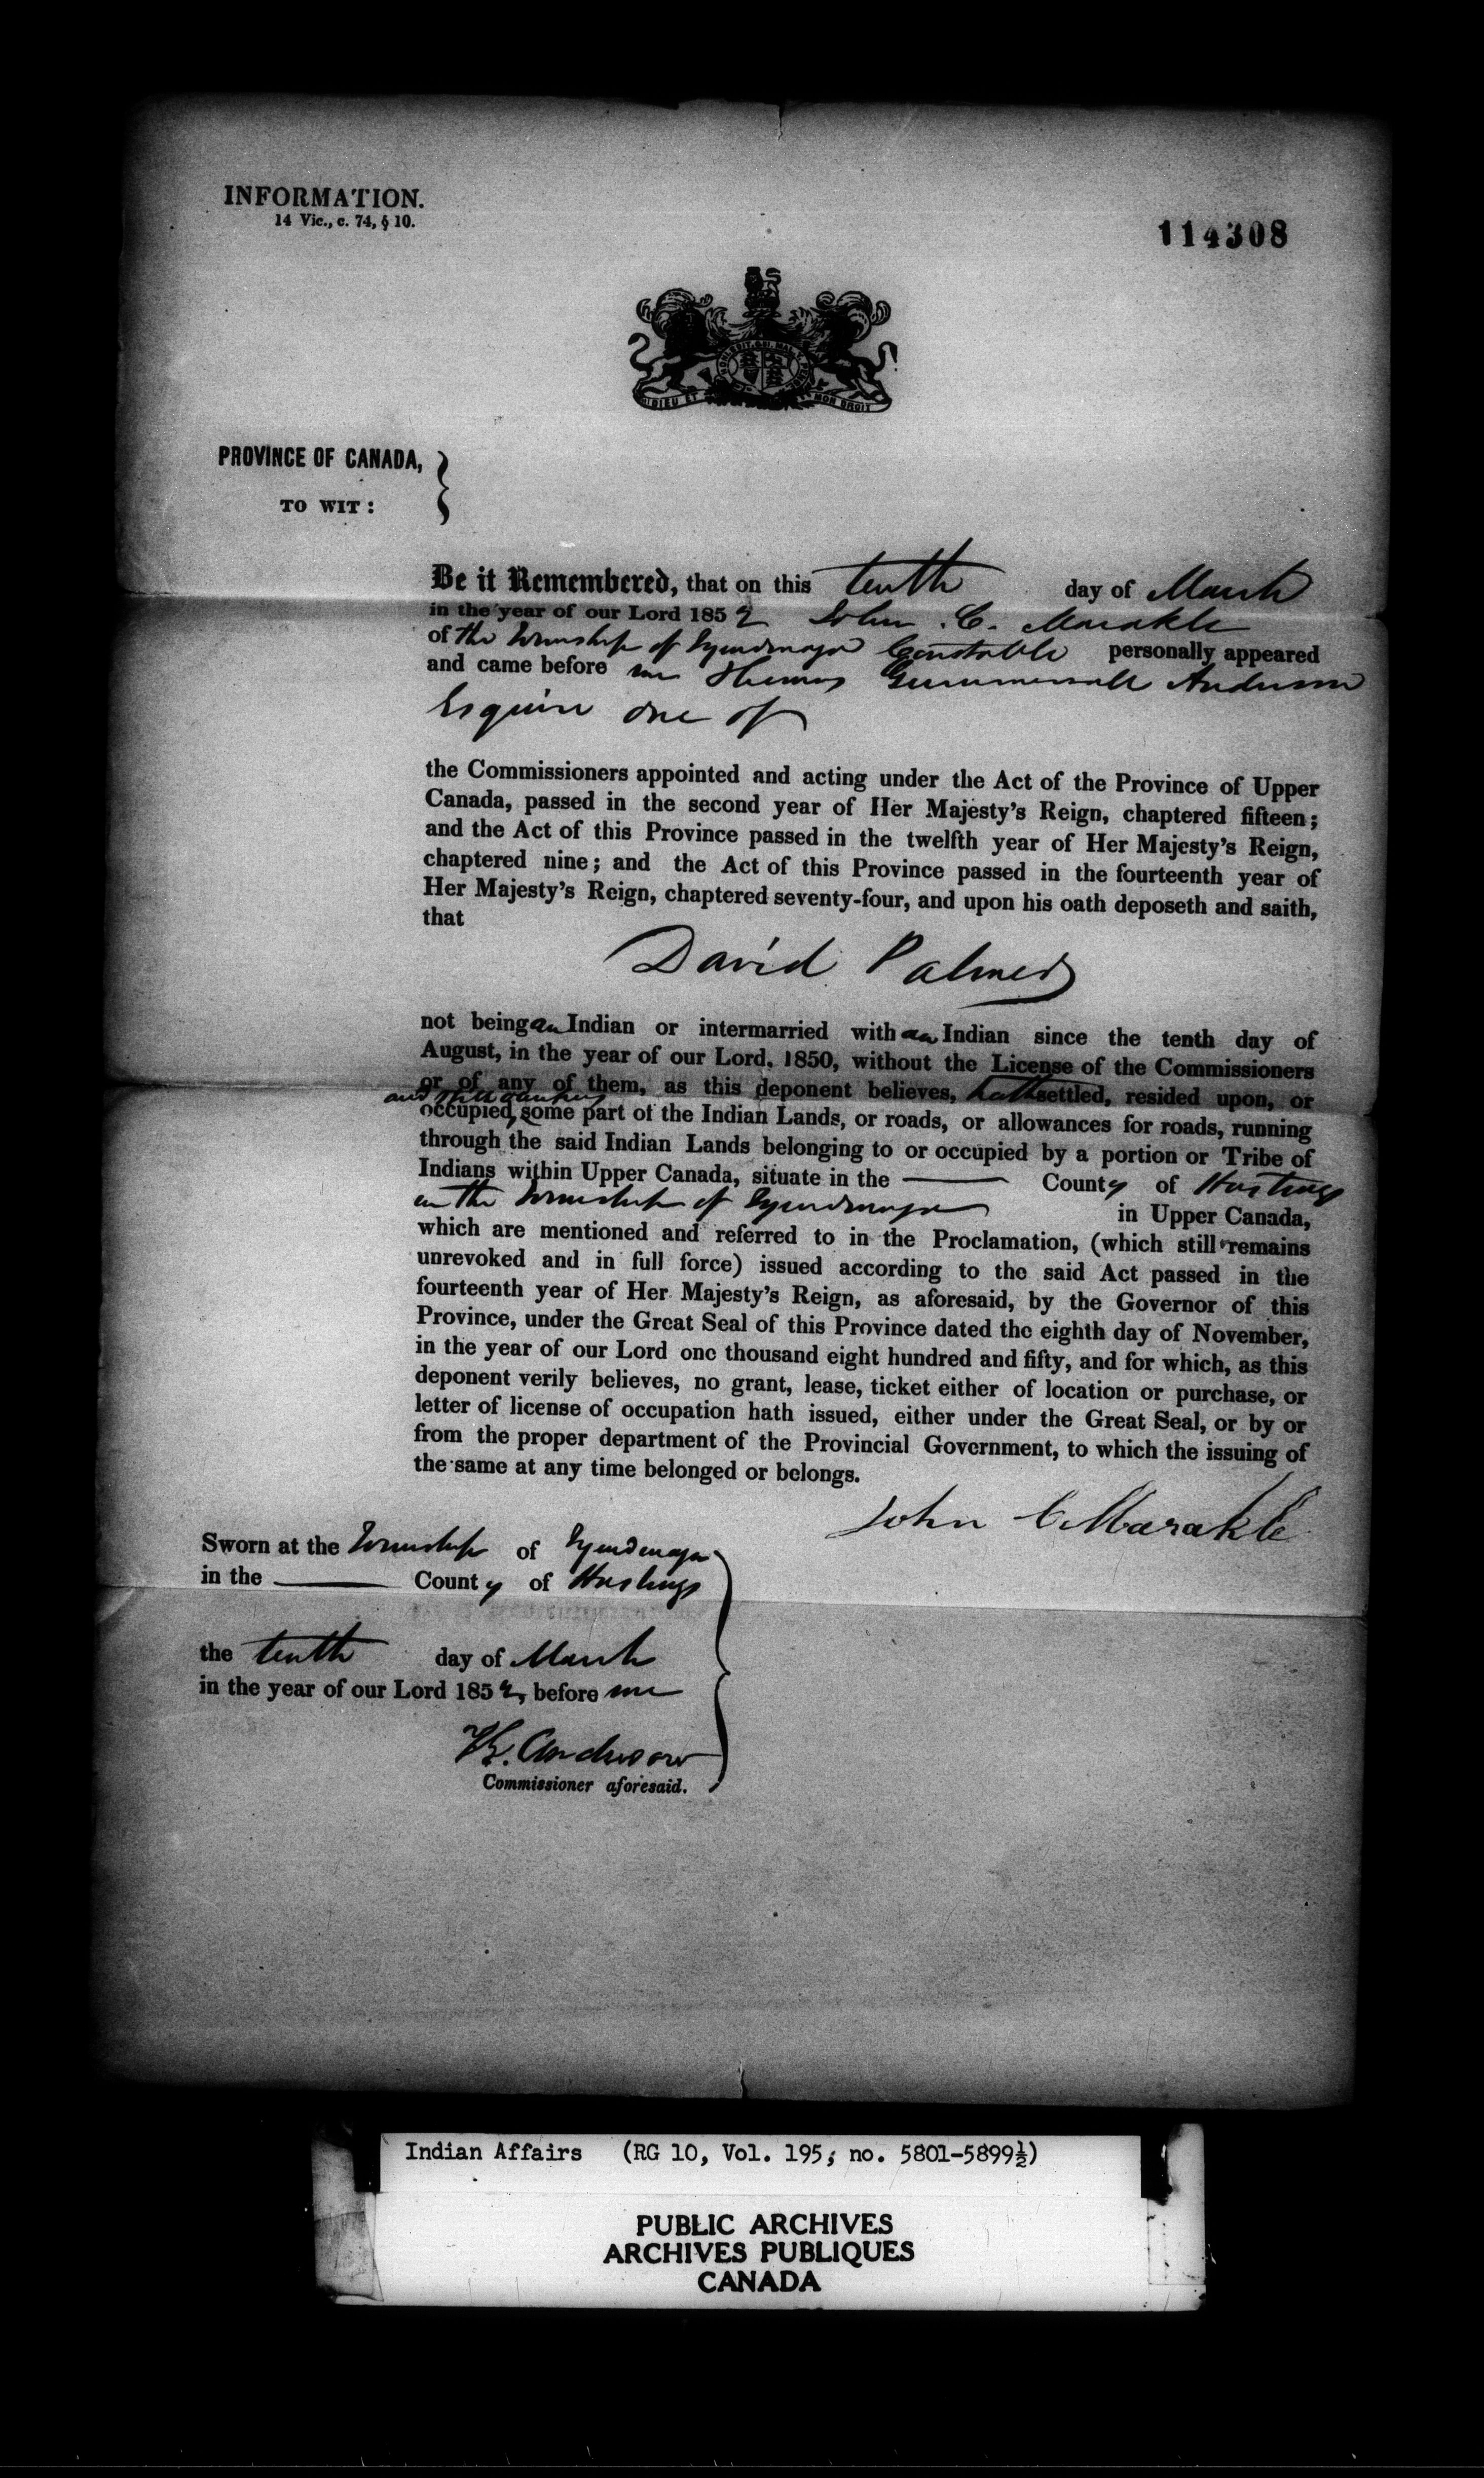 INFORMATION.
14 Vic., c. 74, § 10.
114308
HONI SOIT QUI MAL Y PENSE
DIEU ET MON DROIT
PROVINCE OF CANADA,
TO WIT:
Be it Remembered, that on this tenth day of March
in the year of our Lord 1852 John C. Marakle
of the Township of Tyendenaga Constable personally appeared
and came before me Thomas Gummersall Anderson
Esquire one of
the Commissioners appointed and acting under the Act of the Province of Upper
Canada, passed in the second year of Her Majesty's Reign, chaptered fifteen;
and the Act of this Province passed in the twelfth year of Her Majesty's Reign,
chaptered nine; and the Act of this Province passed in the fourteenth year of
Her Majesty's Reign, chaptered seventy-four, and upon his oath deposeth and saith,
that
David Palmer
not being an Indian or intermarried with an Indian since the tenth day of
August, in the year of our Lord, 1850, without the License of the Commissioners
or of any of them, as this deponent believes, hath settled, resided upon, or
and still occupies
occupied, some part of the Indian Lands, or roads, or allowances for roads, running
through the said Indian Lands belonging to or occupied by a portion or Tribe of
Indians within Upper Canada, situate in the County of Hastings
in the Township of Tyendenaga in Upper Canada,
which are mentioned and referred to in the Proclamation, (which still remains
unrevoked and in full force) issued according to the said Act passed in the
fourteenth year of Her Majesty's Reign, as aforesaid, by the Governor of this
Province, under the Great Seal of this Province dated the eighth day of November,
in the year of our Lord one thousand eight hundred and fifty, and for which, as this
deponent verily believes, no grant, lease, ticket either of location or purchase, or
letter of license of occupation hath issued, either under the Great Seal, or by or
from the proper department of the Provincial Government, to which the issuing of
the same at any time belonged or belongs.
John C Marakle
Sworn at the Township of Tyendenaga
in the County of Hastings
the tenth day of March
in the year of our Lord 1852, before me
T G. Anderson
Commissioner aforesaid.
Indian Affairs (RG 10, Vol. 195; no. 5801-5899½)
PUBLIC ARCHIVES
ARCHIVES PUBLIQUES
CANADA